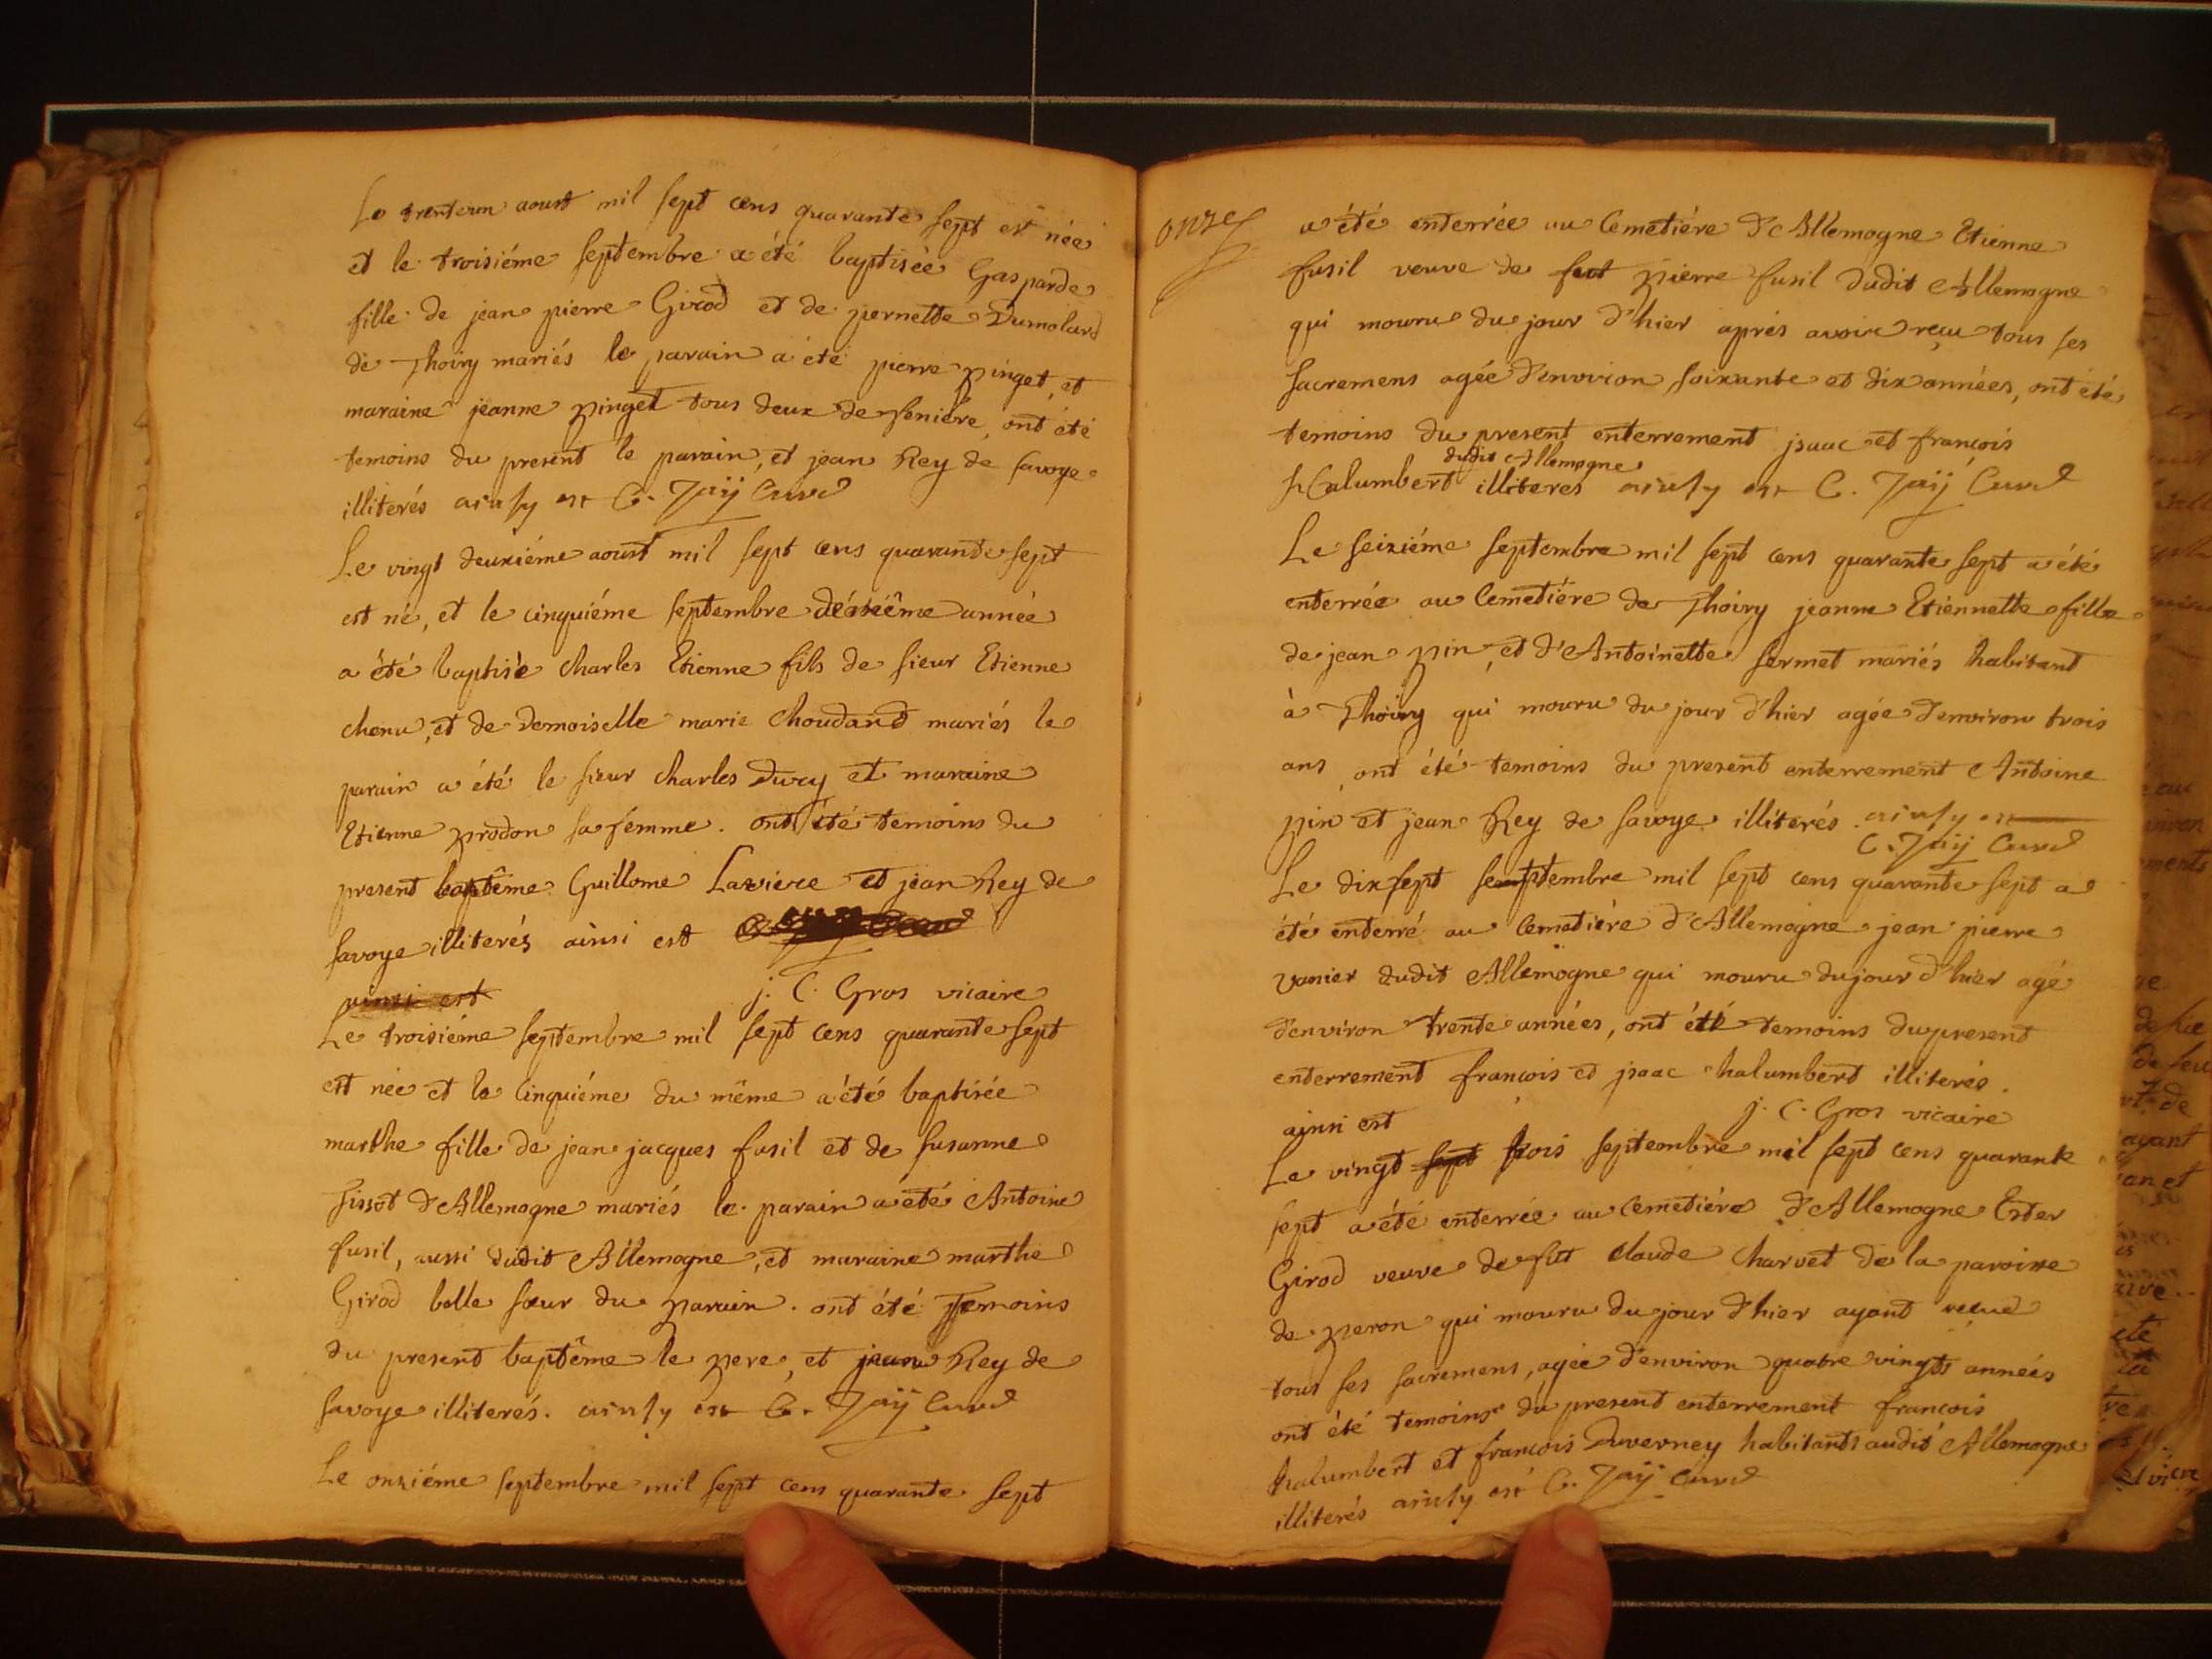 Le trenteun aoust mil sept cens quarante sept est née
et le troisiéme septembre a été baptisée Gasparde
fille de jean pierre Girod et de pernette Dumolard
de Thoiry mariés le parain a été pierre pinget, et
maraine jeanne pinget tous deux de feniére, ont été
temoins du present le parain, et jean Rey de savoye
illiterés ainsy est C. Jaÿ Curé
Le vingt deuxiéme aoust mil sept cens quarante sept
est né, et le cinquiéme septembre année
a été baptisé charles Etienne fils de sieur Etienne
chenu, et de Demoiselle marie choudard mariés le
parain a été le sieur charles Dury et maraine
Etienne prodon sa femme. ont été temoins du
present baptême Guillome Laviere et jean Rey de
savoye illiterés ainsi est
ainsi est j. C. Gros vicaire
Le troisiéme septembre mil sept cens quarante sept
est née et le cinquiéme du même a été baptisée
marthe fille de jean jacques fusil et de susanne
fissot d'Allemogne mariés le parain a été Antoine
fusil, aussi dudit Allemogne, et maraine marthe
Girod belle sœur du parain. ont été Temoins
du present baptême le pere, et jean Rey de
savoye illiterés. ainsy est C. Jaÿ Curé
Le onziéme septembre mil sept cens quarante sept
onze
a été enterrée au Cemetiére d'Allemogne Etienne
fusil veuve de feut pierre fusil dudit Allemogne
qui mouru du jour d'hier aprés avoir reçu tous ses
sacremens agée d'environ soixante et dix années, ont été
temoins du present enterrement jsaac et françois
dudit Allemogne
halumbert illiteres ainsy est C. Jaÿ Curé
Le seiziéme septembre mil sept cens quarante sept a été
enterrée au Cemetiére de Thoiry jeanne Etiennette fille
de jean pin, et d'Antoinette sermet mariés habitant
à Thoiry qui mouru du jour d'hier agée d'environ trois
ans ont été temoins du present enterrement Antoine
pin et jean Rey de savoye illiterés ainsy est
C. Jaÿ Curé
Le dixsept septembre mil sept cens quarante sept a
été enterré au Cemetiére d'Allemogne jean pierre
vanier dudit Allemogne qui mouru dujour d'hier agé
d'environ trente années, ont été temoins dupresent
enterrement francois et jsaac halumbert illiterés.
ainsi est j. C. Gros vicaire
Le vingt sept trois septembre mil sept cens quarante
sept a été enterrée au Cemetiére d'Allemogne Ester
Girod veuve de fut claude Charvet de la paroisse
de peron qui mouru du jour d'hier ayant reçue
tous ses sacremens, agée d'environ quatre vingts années
ont été temoins du present enterrement francois
halumbert et francois Duverney habitants audit Allemogne
illiterés ainsy est C. Jaÿ Curé